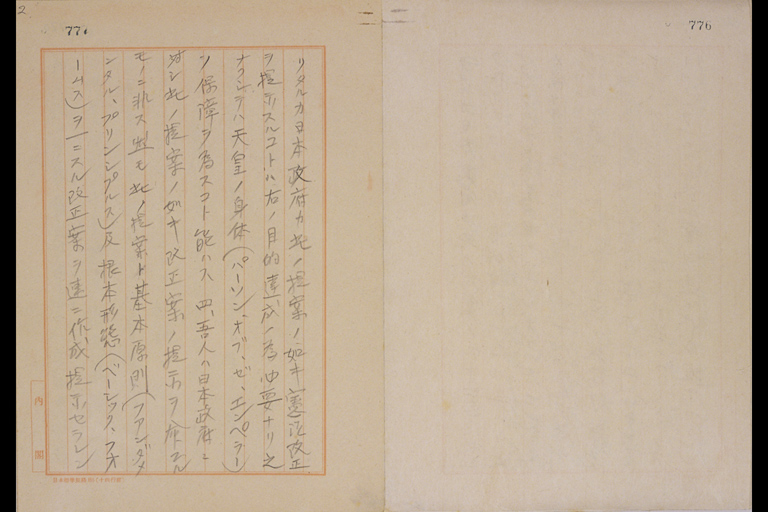 776
リタルカ日本政府カ此ノ提案ノ如キ憲法改正
ヲ提示スルコトハ右ノ目的達成ノ為必要ナリ之
ナクシテハ天皇ノ身体(パーソン、オブ、ゼ、エンペラー)
ノ保障ヲ為スコト能ハス 四、吾人ハ日本政府ニ
対シ此ノ提案ノ如キ改正案ノ提示ヲ命スル
モノニ非ス然レトモ此ノ提案ト基本原則(ファンダメ
ンタル、プリンシプルス)及根本形態(ベーシック、フォ
ームス)ヲ一ニスル改正案ヲ速ニ作成提示セラレン
内閣
2